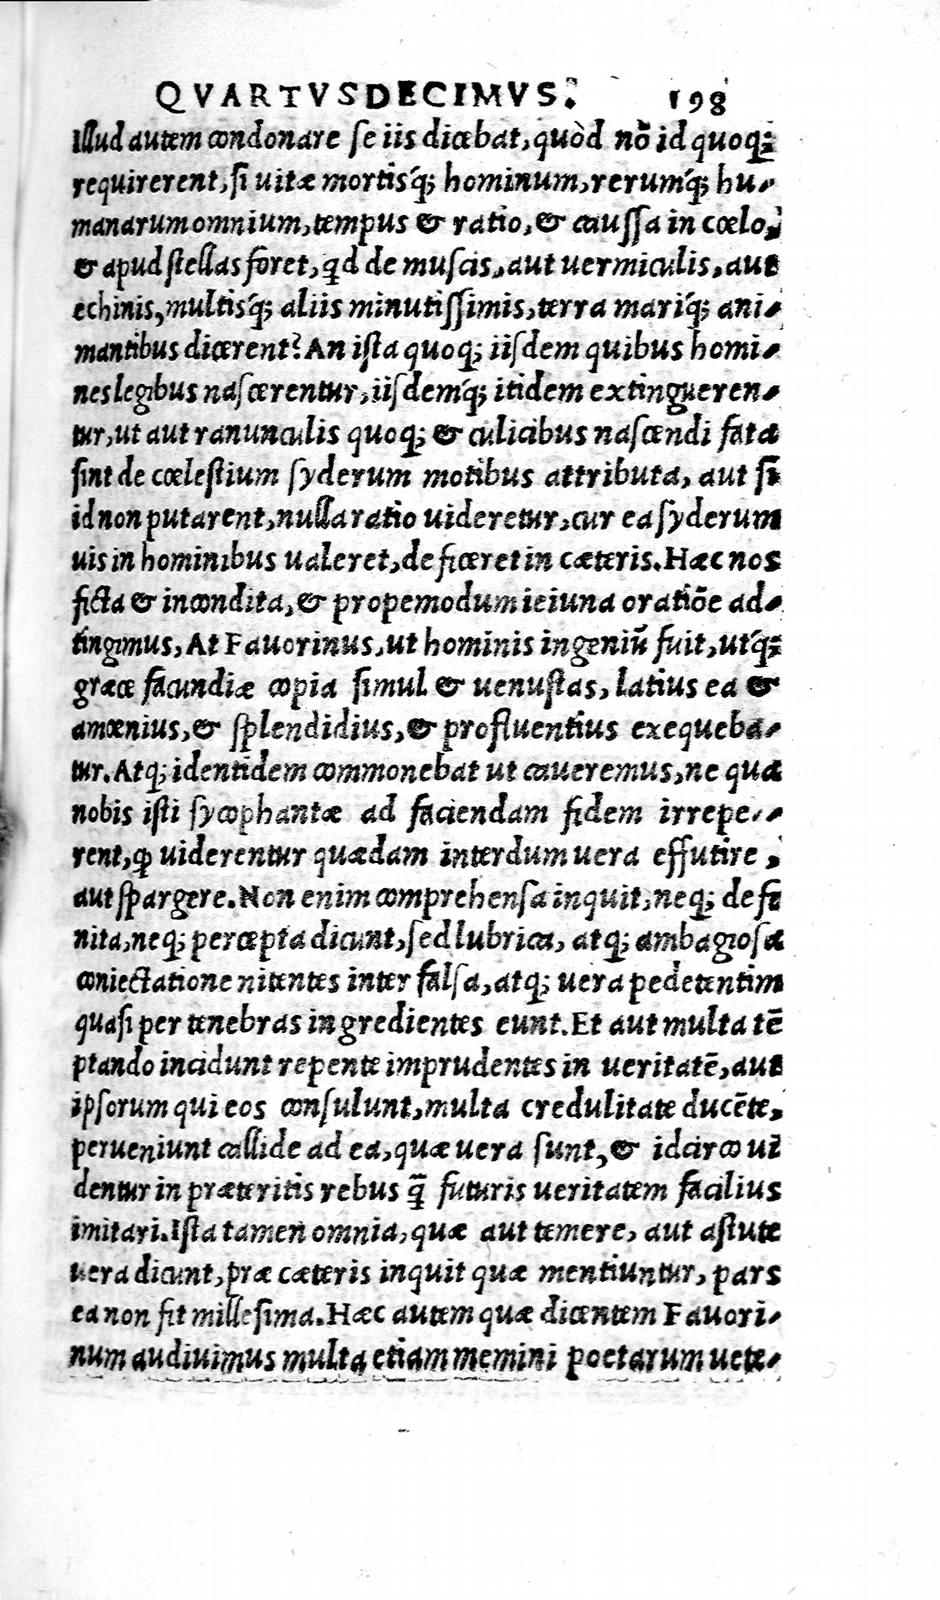 QVARTVSDECIMVS. 198
Illud autem condonare se iis dicebat, quòd nõ id quoq;
requirerent, si uitæ mortisq́; hominum, rerumq́; hu-
manarum omnium, tempus & ratio, & caussa in cœlo,
& apud stellas foret, qd de muscis, aut uermiculis, aut
echinis, multisq́; aliis minutissimis, terra mariq́; ani-
mantibus dicerent? An ista quoq; iisdem quibus homi-
nes legibus nascerentur, iisdemq́; itidem extingueren-
tur, ut aut ranunculis quoq; & culicibus nascendi fata
sint de cœlestium syderum motibus attributa, aut si
id non putarent, nulla ratio uideretur, cur ea syderum
uis in hominibus ualeret, deficeret in cæteris. Hæc nos
ficta & incondita, & propemodum ieiuna oratiõe ad-
tingimus, At Fauorinus, ut hominis ingeniũ fuit, utq́;
græcæ facundiæ copia simul & uenustas, latius ea &
amœnius, & splendidius, & profluentius exequeba-
tur. Atq; identidem commonebat ut caueremus, ne qua
nobis isti sycophantæ ad faciendam fidem irrepe-
rent, ꝙ uiderentur quædam interdum uera effutire,
aut spargere. Non enim comprehensa inquit, neq; defi
nita, neq; percepta dicunt, sed lubrica, atq; ambagiosa
coniectatione nitentes inter falsa, atq; uera pedetentim
quasi per tenebras ingredientes eunt. Et aut multa tẽ
ptando incidunt repente imprudentes in ueritatẽ, aut
ipsorum qui eos consulunt, multa credulitate ducẽte,
perueniunt callide ad ea, quæ uera sunt, & idcirco ui
dentur in præteritis rebus q̃ futuris ueritatem facilius
imitari. Ista tamen omnia, quæ aut temere, aut astute
uera dicunt, præ cæteris inquit quæ mentiuntur, pars
ea non fit millesima. Hæc autem quæ dicentem Fauori-
num audiuimus multa etiam memini poetarum uete-